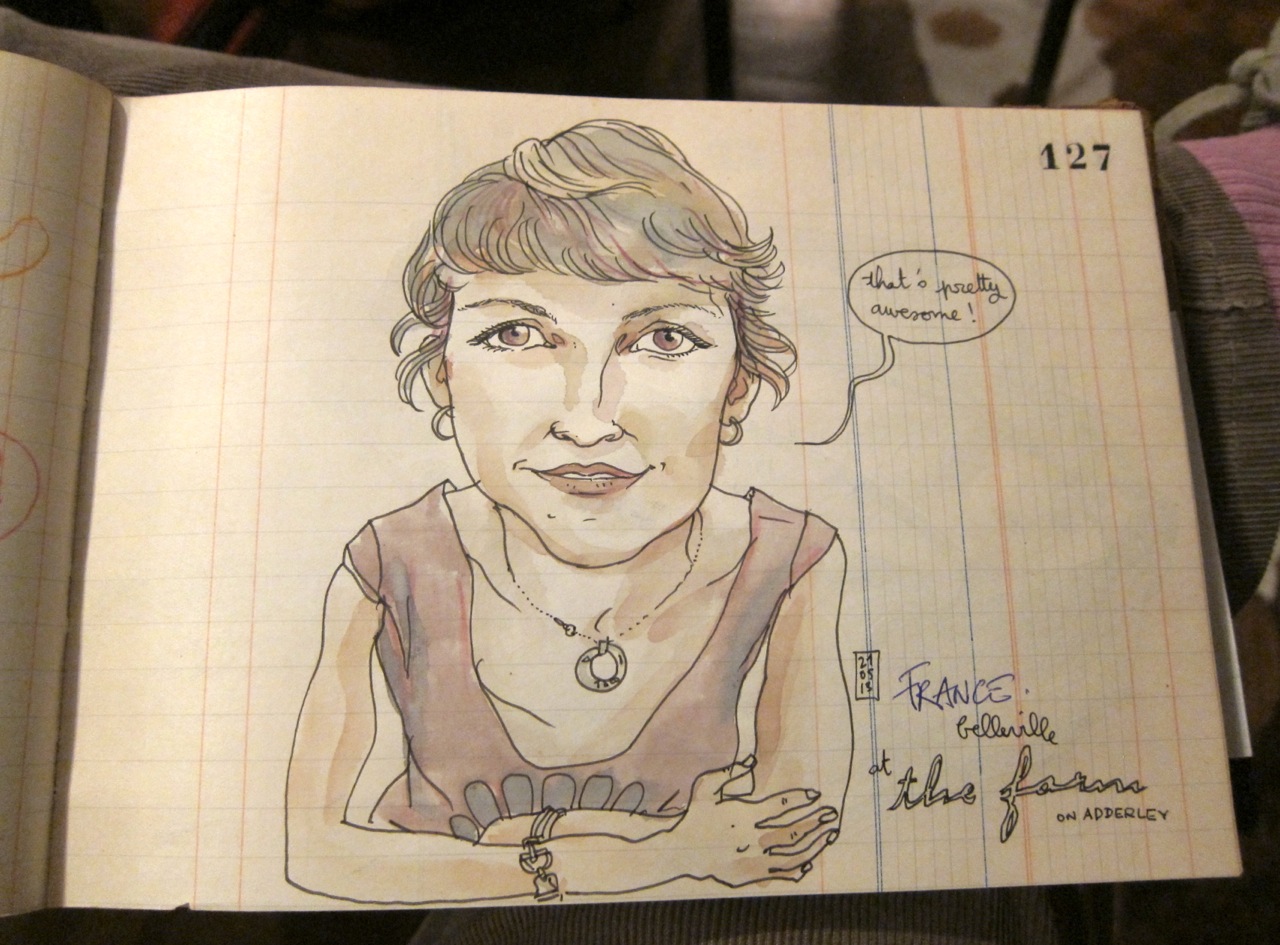 127
that's pretty
awesome!
FRANCE.
belleville
at
the farm
ON ADDERLEY